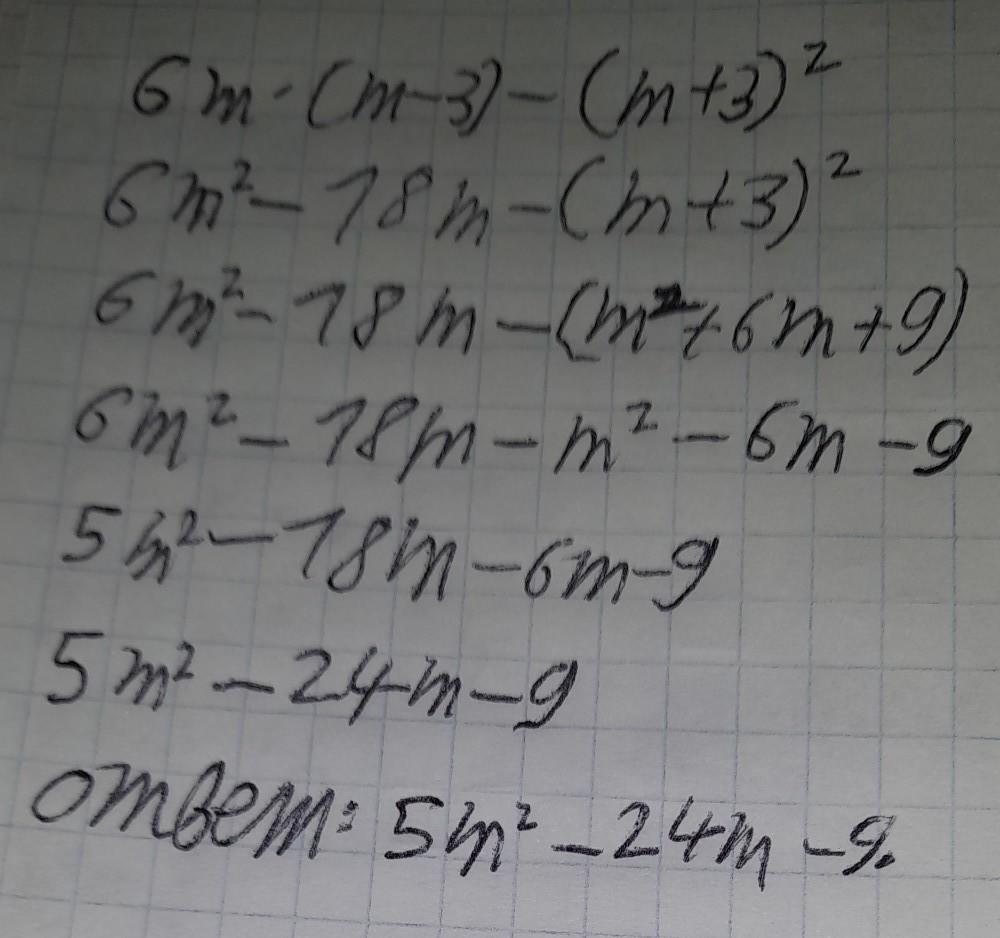 6m · (m-3) - (m+3)²
6m² - 18m - (m+3)²
6m² - 18m - (m²+6m+9)
6m² - 18m - m² - 6m - 9
5m² - 18m - 6m - 9
5m² - 24m - 9
ответ: 5m² - 24m - 9.